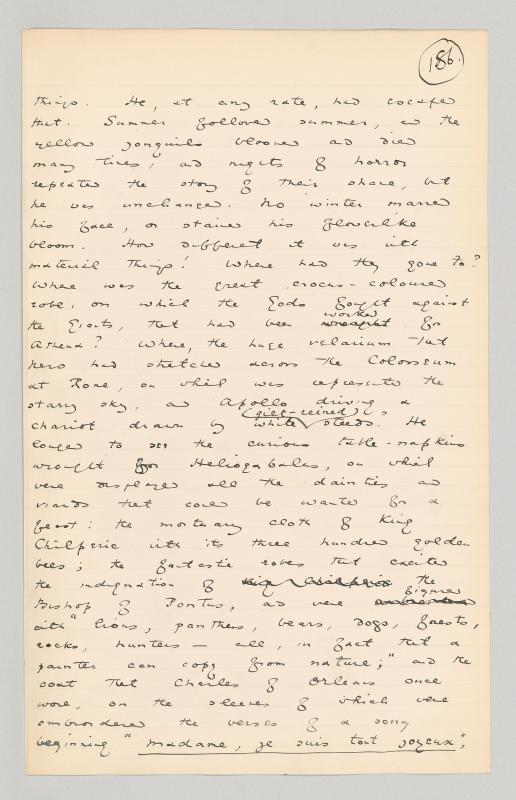 186.
things. He, at any rate, had escaped
that. Summer followed summer, and the
yellow jonquils bloomed and died
many times, and nights of horror
repeated the story of their shame, but
he was unchanged. No winter marred
his face, or stained his flowerlike
bloom. How different it was with
material things! Where had they gone to?
Where was the great crocus-coloured
robe, on which the Gods fought against
the Giants, that had been worked for
Athena? Where, the huge velarium that
Nero had stretched across the Colosseum
at Rome, on which was represented the
starry sky, and Apollo driving a
chariot drawn by white gilt-reined steeds. He
longed to see the curious table-napkins
wrought for Heliogabalus, on which
were displayed all the dainties and
viands that could be wanted for a
feast: the mortuary cloth of King
Chilperic with its three hundred golden
bees; the fantastic robes that excited
the indignation of King Chilperic the
Bishop of Pontus, and were embroidered figured
with "lions, panthers, bears, dogs, forests,
rocks, hunters — all, in fact that a
painter can copy from nature;" and the
coat that Charles of Orleans once
wore, on the sleeves of which were
embroidered the verses of a song
beginning "madame, je suis tout joyeux",